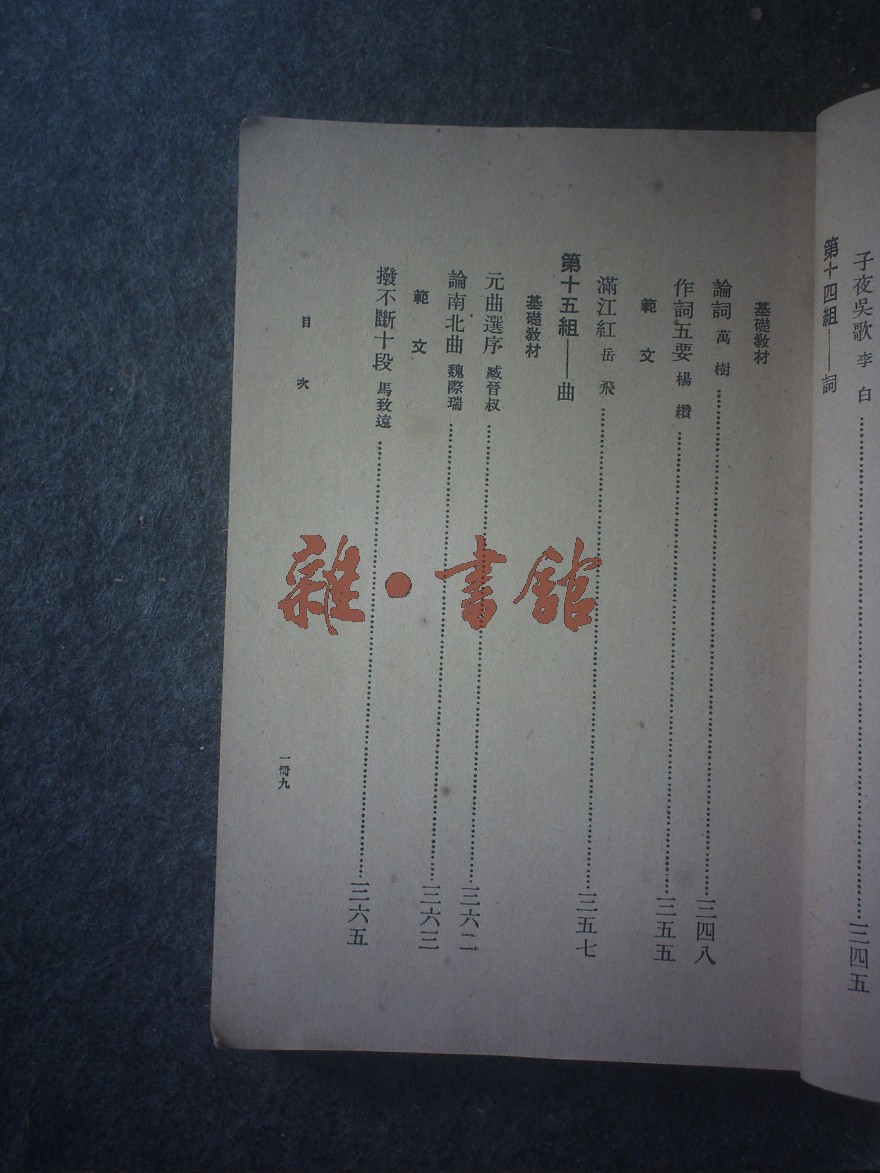 子夜吳歌 李白 三四五
第十四組——詞
基礎敎材
論詞 萬樹 三四八
作詞五要 楊纘 三五五
範文
滿江紅 岳飛 三五七
第十五組——曲
基礎敎材
元曲選序 臧晉叔 三六二
論南北曲 魏際瑞 三六三
範文
撥不斷十段 馬致遠 三六五
目次
一冊九
雜·書館